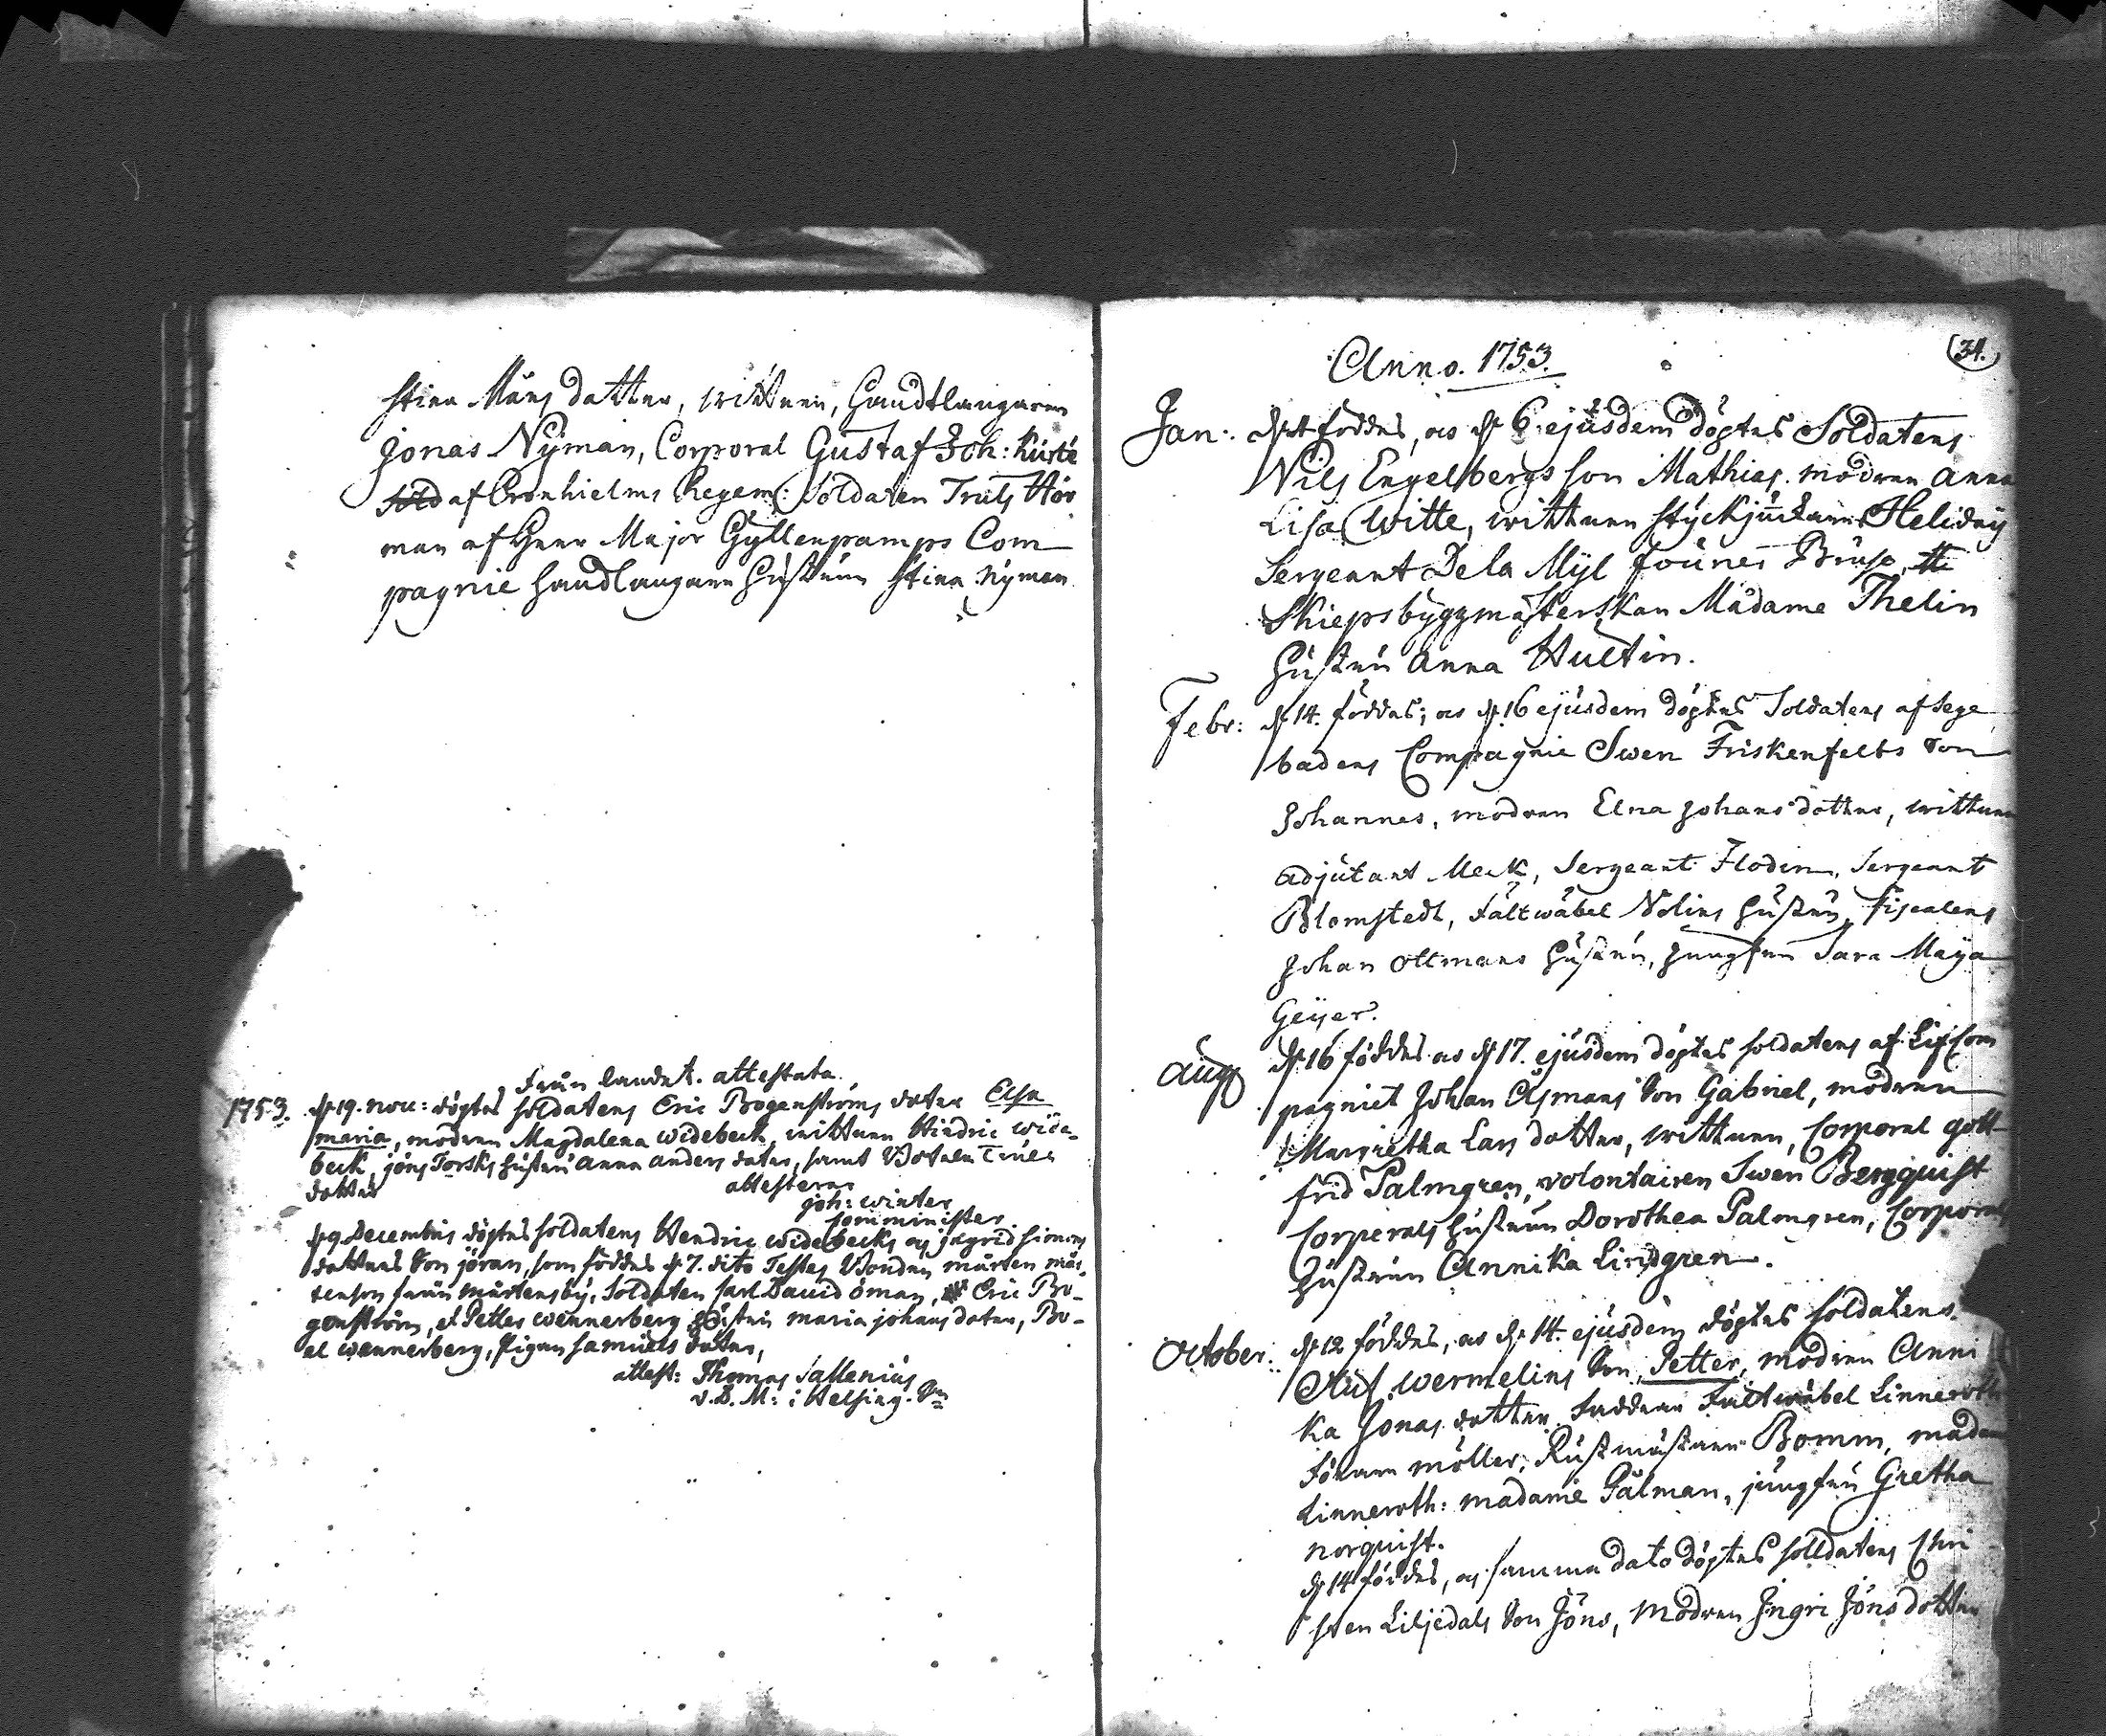 Stina Måns dotter, wittnen, Handtlangaren
Jonas Nyman, Corporal Gustaf Joh: Kürté
sold af Cronhielms Regem: Soldaten Truls Hör
man af Herr Major Gyllenpamps Com
pagnie handlangaren hustrun Stina Nyman
Från landet. attestata.
1753. d: 19. nov: döptes soldatens Eric Bogenströms doter Elsa
maria, modren Magdalena widebeck, wittnen Hindric wide-
beck, jöns Torsks hustru anna anders doter, samt
dotter
attesterar
joh: winter
Comminister
d: 9 Decembris döptes soldatens Hendric widebecks och jngrid simons
dotters son jöran, som föddes d: 7. dito Testes Bonden mårten mår
tenson från mårtensby, Soldaten Carl David öman, Eric Bo-
genström, et Petter wennerberg, hustru maria johans doter, Bo-
el wennerberg, Pigan samuels doter,
attest: Thomas Sallenius
v.D.M: i Helsing. Sn
(31.)
Anno. 1753.
Jan: d: 4 föddes, oc d: 6 ejusdem döptes Soldatens
Nils Engelbergs son Mathias. modren Anna
Lisa Witte, wittnen styckjunkaren Heliday
Sergeant De la Myl Bruse, tte
Skiepsbyggmästerskan Madame Thelin
hustru Anna Hultin.
Febr: d: 14. föddes; oc d: 16 ejusdem döptes Soldatens af Sege
badens Compagnie Swen Friskenfelts son
Johannes, modren Elna Johans dotter, wittnen
Adjutant Meck, Sergeant Flodin, Sergeant
Blomstedt, Fältwäbel Nolins hustru, Fiscalens
Johan Oltmans hustru, Jungfru Sara Maya
Geijer.
Aug d: 16 föddes oc d: 17. ejusdem döptes soldatens af Lif Com
pagniet Johan Åsmans son Gabriel, modren
Margretha Lars dotter, wittnen, Corporal gott
frid Palmgren, volontairen Swen Bergquist
Corporals hustrun Dorothea Palmgren, Corporals
hustrun Annika Lindgren.
October: d: 12 föddes, oc d: 14. ejusdem döptes soldatens
Oluf Wermelins son Petter, modren Anni
ka Jonas dotter. Faddrar Fältwäbel Linneroth
Föraren möller, Rustmästaren Bomm, madam
Linneroth: madame Pålman, jungfru Gretha
norquist.
d: 14 föddes, och samma dato döptes solldatens Chri
sten Liljedals son Jöns, modren Jngri Jöns dotter